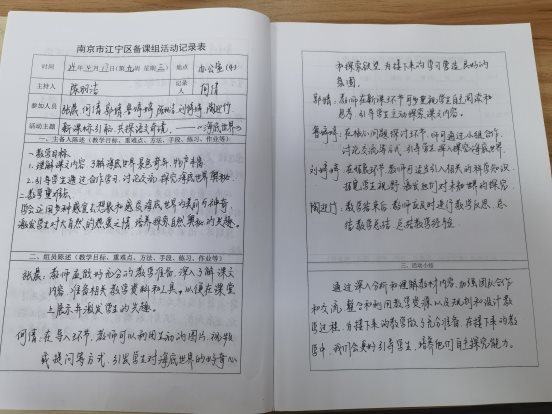 南京市江宁区备课组活动记录表
时间 年4月17日(第九周 星期三) 地点 办公室(4)
主持人 陈羽洁 记录人 何倩
参加人员 张晨 何倩 郭晴 鲁婷婷 陈羽洁 刘婷婷 陶进竹
活动主题 新课标引船,共探语文奇境——《海底世界》
一、主备人陈述(教学目标、重难点、方法、手段、练习、作业等)
一、教学目标
1. 理解课文内容,了解海底世界景色奇异、物产丰富
2. 引导学生通过合作学习、讨论交流,探究海底世界奥秘
二、教学重难点:
学会运用多种感官去想象和感受海底世界的美丽与神奇,
激发学生对大自然的热爱之情,培养探索自然奥秘的兴趣。
二、组员陈述(教学目标、重难点、方法、手段、练习、作业等)
张晨:教师应做好充分的教学准备,深入了解课文
内容,准备相关教学资料和工具,以便在课堂
上展示并激发学生的兴趣。
何倩:在导入环节,教师可以利用生动的图片、视频
或提问等方式,引出学生对海底世界的好奇心
和探索欲望,为接下来的学习营造良好的
氛围。
郭晴:教师在新课环节可多重视学生自主阅读和
思考,引导学生主动探索课文内容。
鲁婷婷:在核心问题探讨环节,师可通过小组合作、
讨论交流等方式,引导学生深入探究海底世界。
刘婷婷:在拓展环节,教师可适当引入相关的科学知识,
拓宽学生视野,激发他们对未知世界的探究
陶进竹:教学结束后,教师应及时进行教学反思,总
结教学经验
三、活动小结
通过深入分析和理解教材内容,加强团队合作
和交流,整合和利用教学资源以及规划和设计教
学过程,为接下来的教学做了充分准备,在接下来的教
学中,我们会更好引导学生,培养他们自主探究能力。